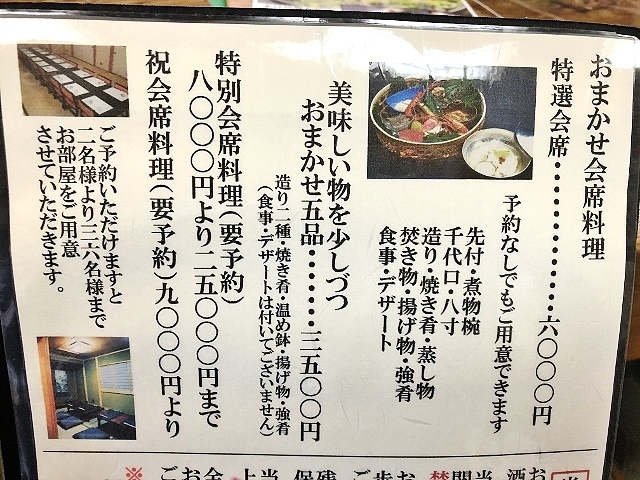 おまかせ会席料理
特選会席・・・・・・・・・・・六〇〇〇円
予約なしでもご用意できます
先付・煮物椀
千代口・八寸
造り・焼き肴・蒸し物
焚き物・揚げ物・強肴
食事・デザート
美味しい物を少しづつ
おまかせ五品・・・・・・三五〇〇円
造り二種・焼き肴・温め鉢・揚げ物・強肴
(食事・デザートは付いてございません)
特別会席料理(要予約)
八〇〇〇円より二五〇〇〇円まで
祝会席料理(要予約)九〇〇〇円より
ご予約いただけますと
二名様より三六名様まで
お部屋をご用意
させていただきます。
お酒
当間禁
お歩ご
残保
当上
金お
ご
※